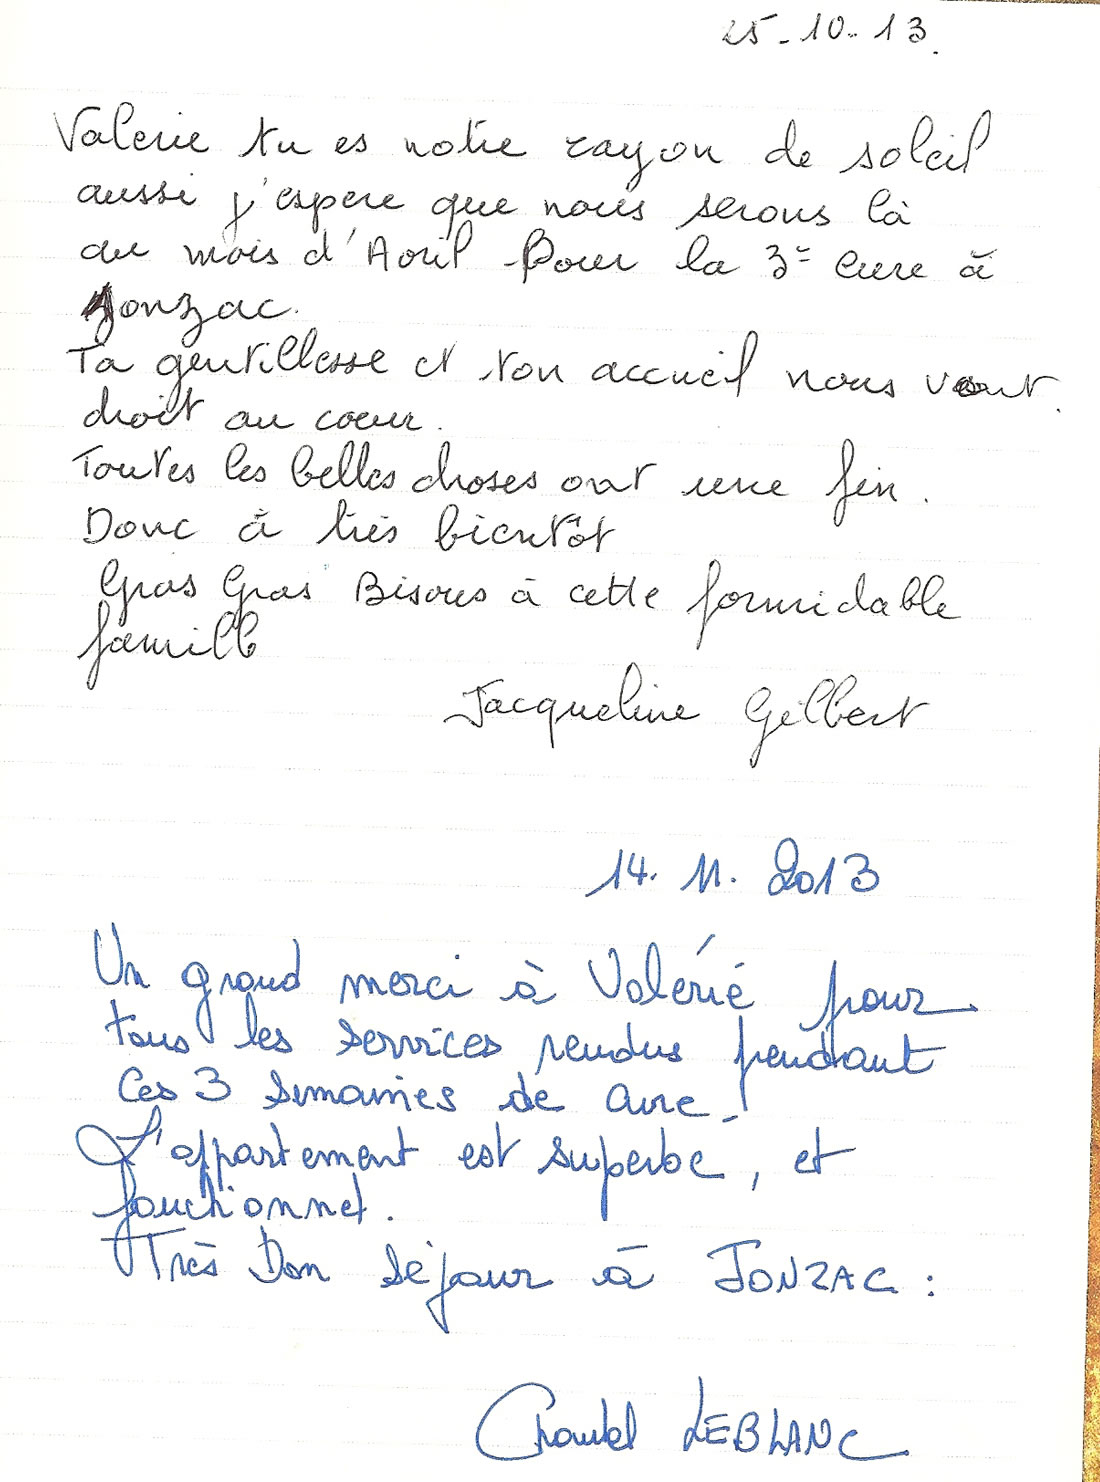 25-10-13.
Valerie tu es notre rayon de soleil
aussi j'espere que nous serons là
au mois d'Avril Pour la 3e Cure à
Jonzac.
Ta gentillesse et ton accueil nous vont.
droit au coeur.
Toutes les belles choses ont une fin.
Donc à très bientôt
Gros Gros Bisous à cette formidable
famille
Jacqueline Gilbert
14.11.2013
Un grand merci à Valérie pour
tous les services rendus pendant
Ces 3 semaines de cure.
L'appartement est superbe, et
fonctionnel.
Très Bon séjour à JONZAC :
Chantal LEBLANC